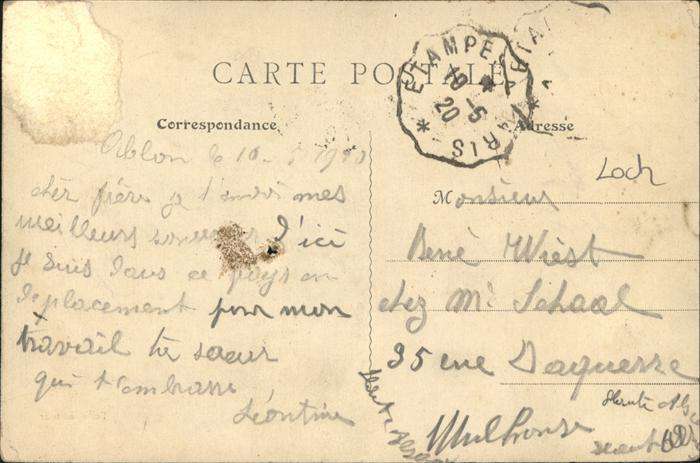 CARTE POSTALE
ETAMPES A PARIS
10 -5
20
Correspondance
Adresse
Ablon le 10 1920
cher frère je t'envoi mes
meilleurs d'ici
je suis dans ce pays en
deplacement pour mon
travail ta sœur
qui t'embrasse
Léontine
Loch
Monsieur
René Wiest
chez Mr Schaal
35 rue Daguerre
Mulhouse
Haute